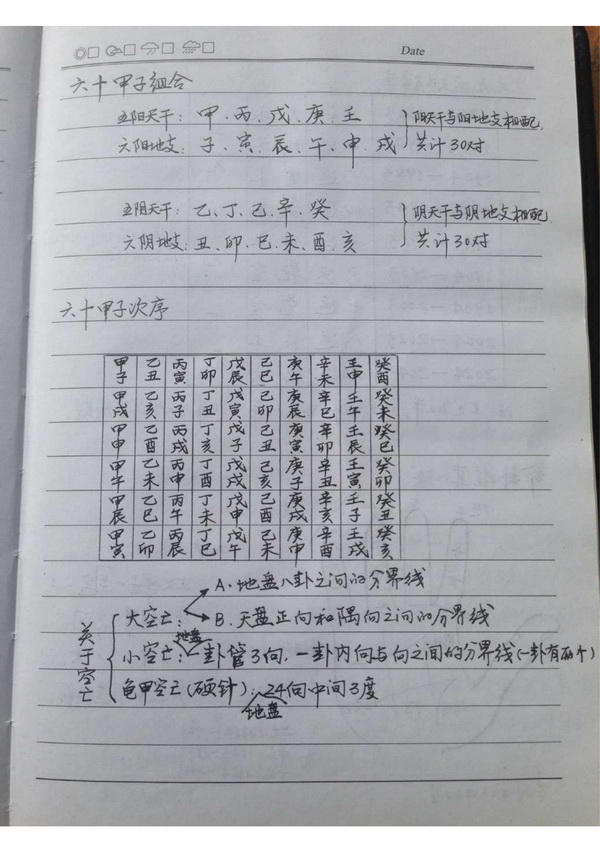 Date
六十甲子组合
五阳天干：甲、丙、戊、庚、壬 }阳天干与阳地支相配，
六阳地支：子、寅、辰、午、申、戌 共计30对
五阴天干：乙、丁、己、辛、癸 }阴天干与阴地支相配
六阴地支：丑、卯、巳、未、酉、亥 共计30对
六十甲子次序
甲子 乙丑 丙寅 丁卯 戊辰 己巳 庚午 辛未 壬申 癸酉
甲戌 乙亥 丙子 丁丑 戊寅 己卯 庚辰 辛巳 壬午 癸未
甲申 乙酉 丙戌 丁亥 戊子 己丑 庚寅 辛卯 壬辰 癸巳
甲午 乙未 丙申 丁酉 戊戌 己亥 庚子 辛丑 壬寅 癸卯
甲辰 乙巳 丙午 丁未 戊申 己酉 庚戌 辛亥 壬子 癸丑
甲寅 乙卯 丙辰 丁巳 戊午 己未 庚申 辛酉 壬戌 癸亥
关于空亡
A. 地盘八卦之间的分界线
大空亡：
B. 天盘正向和隅向之间的分界线
地盘
小空亡：一卦管3向，一卦内向与向之间的分界线(一卦有两个)
龟甲空亡(砜针)：24向中间3度
地盘